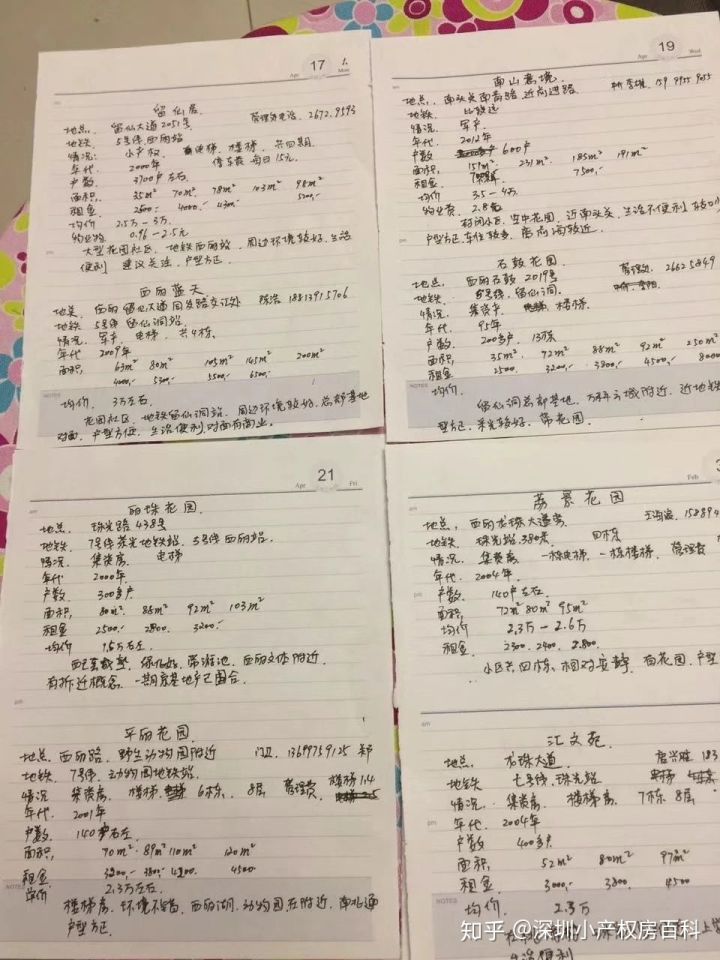 Apr 17 Mon
留仙居
地点、留仙大道2051号 管理处电话、2672.9593
地铁、5号线西丽站
情况: 小产权 电梯、楼梯、共四期
年代、2000年 停车费 每日15元
户数、3700户左右
面积、35m² 70m² 78m² 103m² 98m²
租金 2600.- 4000.- 4300.- 5200.-
均价 2.5万-3万
物业物 0.96-2.5元
大型花园社区、地铁西丽站、周边环境较好、生活
便利 建议关注、户型方正
西丽蓝天
地点、西丽留仙大道同发路交汇处 18813915706
地铁、5号线 留仙洞站
情况、军产、电梯、共4栋
年代 2009年
面积、63m² 80m² 105m² 145m² 200m²
4000.- 5300.- 5500.- 6500.-
NOTES
均价、3万左右
花园社区、地铁留仙洞站、周边环境较好、总部基地
对面、户型方便、生活便利、对面有商业。
Apr 19 Wed
南山意境
地点、南头关南商路、近前进路 159 9955 9055
地铁、比较远
情况、军产
年代、2012年
户数 600户
面积、159m² 231m² 185m² 191m²
租金 7500.-
均价 3.5-4万
物业费、2.8元
封闭小区、空中花园、近南头关、生活不便利
户型方正、车位较多、离前海较近
石鼓花园
地点、西丽石鼓2019号 管理处、2662 5849
地铁、5号线、留仙洞
情况、集资房 楼梯
年代 95年
户数、200多户、13栋
面积、35m² 72m² 88m² 92m² 250m²
租金 2500 3200.- 3800 4500.- 8000
NOTES
均价、
留仙洞总部基地、万科云城附近、近地铁
型方正、采光较好、带花园
Apr 21 Fri
丽珠花园
地点、珠光路438号
地铁、7号线茶光地铁站、5号线西丽站
情况、集资房、电梯
年代、2000年
户数、300多户
面积、80m² 88m² 92m² 103m²
租金 2500.- 2800. 3200.-
均价 1.5万左右
西丽文体附近
有拆迁概念、一期房基地产已围合
平丽花园
地点、西丽路、野生动物园附近 13699759125 郑
地铁、7号线、动物园地铁站
情况 集资房、楼梯、6栋、8层 管理费、楼梯1.4
年代、2001年
户数、140户左右
面积、70m² 89m² 110m² 120m²
租金 3200.- 3800.- 4200.- 4500
NOTES
均价 2.3万左右
楼梯房、环境不错、西丽湖、动物园在附近、南北通
户型方正
Feb
荔景花园
地点、西丽龙珠大道旁 158894
地铁、珠光站380米 四栋
情况、集资房 一栋电梯、一栋楼梯、管理费
年代、2004年
户数、140户左右
面积、72m² 80m² 95m²
均价 2.3万-2.6万
租金、2300. 2400. 2800.
小区共四栋、相对安静、面花园、户型
汇文苑
地点、龙珠大道 183
地铁 七号线、珠光站
情况、集资房 楼梯房 7栋 8层
年代、2004年
户数 400多户
面积 52m² 80m² 97m²
租金 3000.- 3800 4500
NOTES
均价、2.3万
生活便利
知乎 @深圳小产权房百科